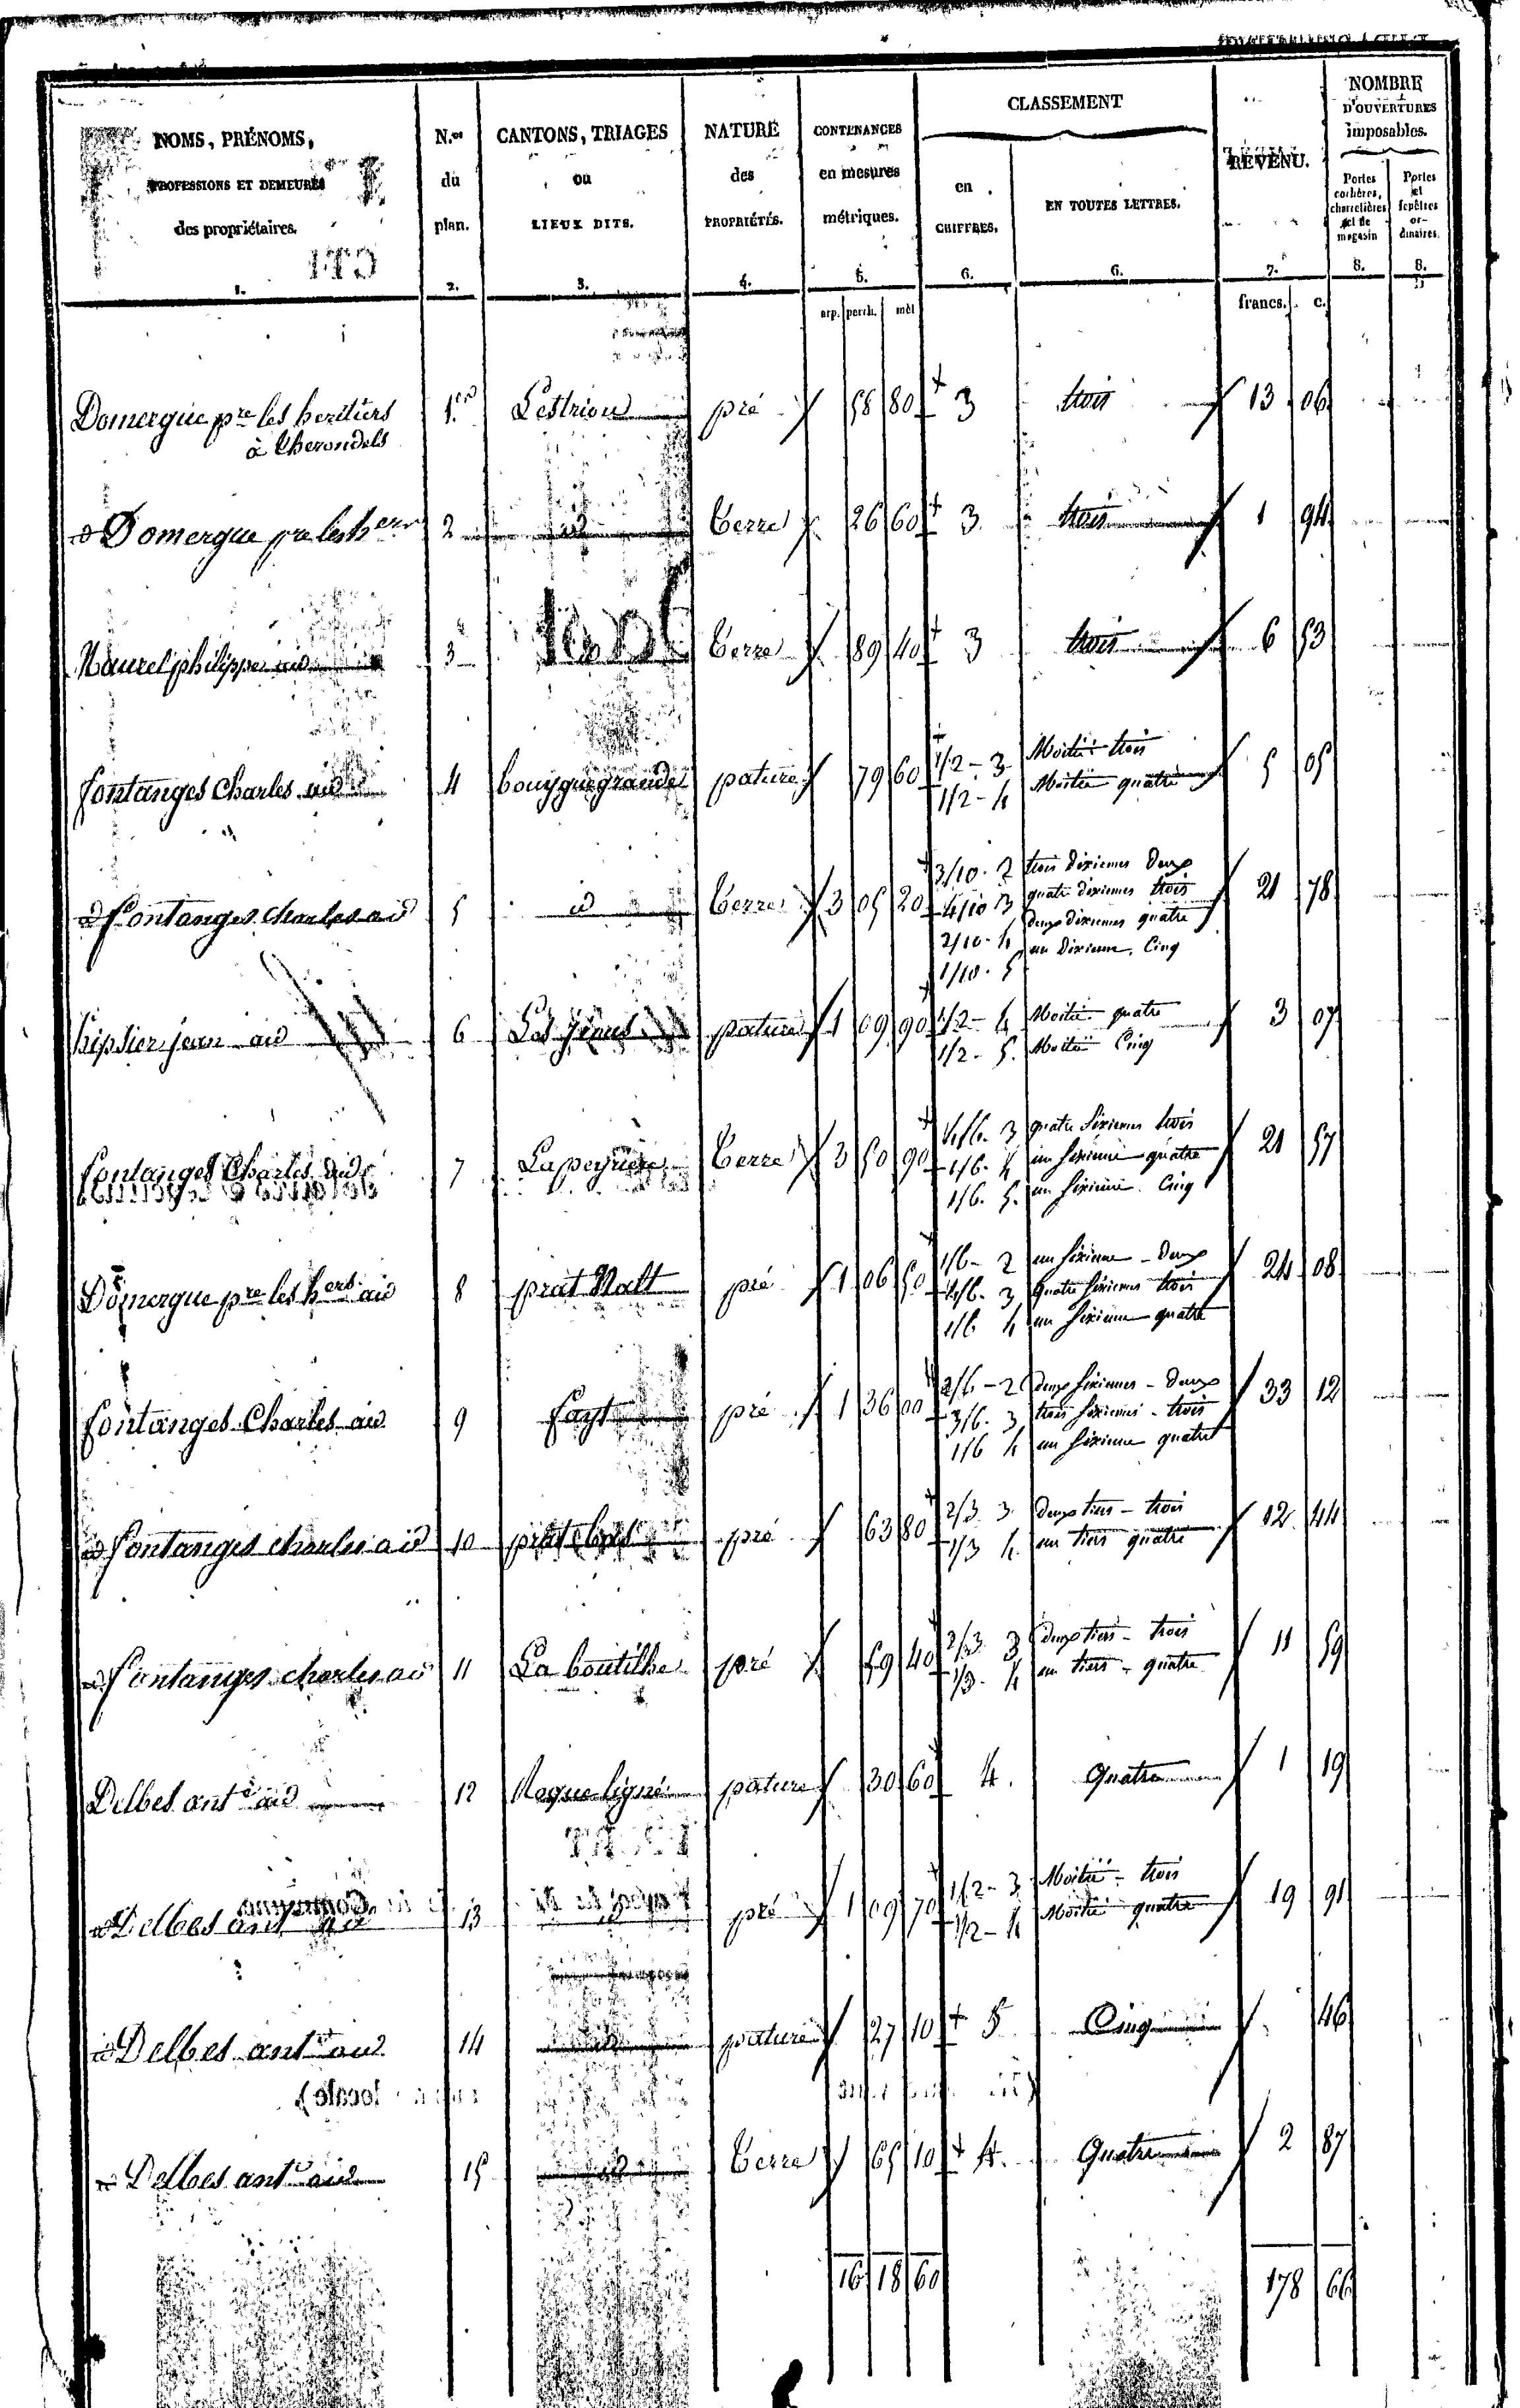 NOMS, PRÉNOMS,
PROFESSIONS ET DEMEURES
des propriétaires.
1.
N.os
du
plan.
2.
CANTONS, TRIAGES
ou
LIEUX DITS.
3.
NATURE
des
PROPRIÉTÉS.
4.
CONTENANCES
en mesures
métriques.
5.
CLASSEMENT
en
CHIFFRES.
6.
EN TOUTES LETTRES.
6.
REVENU.
7.
NOMBRE
D'OUVERTURES
imposables.
Portes
cochères,
charretières
et de
magasin
8.
Portes
et
fenêtres
or-
dinaires.
8.
arp. perch. mèt
francs. c.
Domergue pre les heritiers 1er Lestrieu pré 58 80 3 trois 13 06
à Therondels
id Domergue pre les hers 2 id Terre 26 60 3 trois 1 94
Maurel philippe aid 3 Terre 89 40 3 trois 6 53
fontanges Charles aid 4 bouygue grande pature 79 60 1/2 - 3 Moitié trois 5 05
1/2 - 4 Moitié quatre
id fontanges charles aid 5 id Terre 3 05 20 3/10 - 2 trois dixiemes Deux 21 78
4/10 3 quatre dixiemes trois
2/10 - 4 deux dixiemes quatre
1/10 - 5 un Dixieme Cinq
jean aid 6 pature 1 09 90 1/2 - 4 Moitié quatre 3 07
1/2 - 5. Moitié Cinq
fontanges Charles aid 7 Lapeyriere Terre 3 50 90 4/6. 3 quatre sixiemes trois 21 57
1/6. 4 un sixieme quatre
1/6. 5. un sixieme Cinq
Domergue pre les hers aid 8 prat Nalt pré 1 06 50 1/6 - 2 un sixieme - Deux 24 08
4/6. 3 quatre sixiemes trois
1/6 4 un sixieme quatre
fontanges Charles aid 9 fayt pré 1 36 00 2/6 - 2 deux sixiemes - Deux 33 12
3/6. 3 trois sixiemes - trois
1/6 4 un sixieme quatre
id fontanges charles aid 10 prat clos pré 63 80 2/3 3 Deux tiers - trois 12 44
1/3 4. un tiers quatre
id fontanges charles aid 11 La boutilhe pré 59 40 2/3 3 deux tiers - trois 11 59
1/3 - 4 un tiers - quatre
Delbes ante aid 12 Roque ligné pature 30 60 4. Quatre 1 19
id Delbes ante aid 13 id pré 1 09 70 1/2 - 3 Moitié - trois 19 91
1/2 - 4 Moitié quatre
id Delbes ante aid 14 id pature 27 10 5 Cinq 46
id Delbes ante aid 15 id Terre 65 10 4. Quatre 2 87
16 18 60 178 66